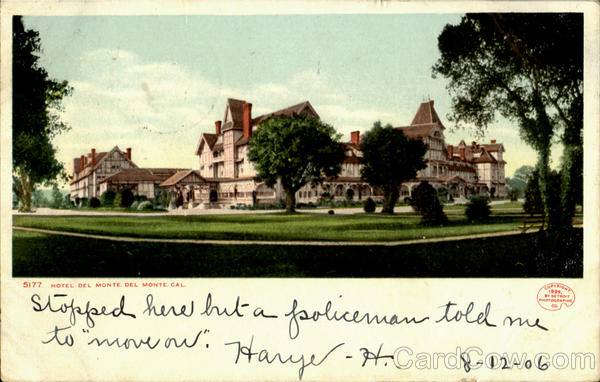 5177. HOTEL DEL MONTE. DEL MONTE. CAL.
COPYRIGHT
1898,
BY DETROIT
PHOTOGRAPHIC
CO.
Stopped here but a policeman told me
to "move on". Harye - H. 8-12-06
CardCow.com